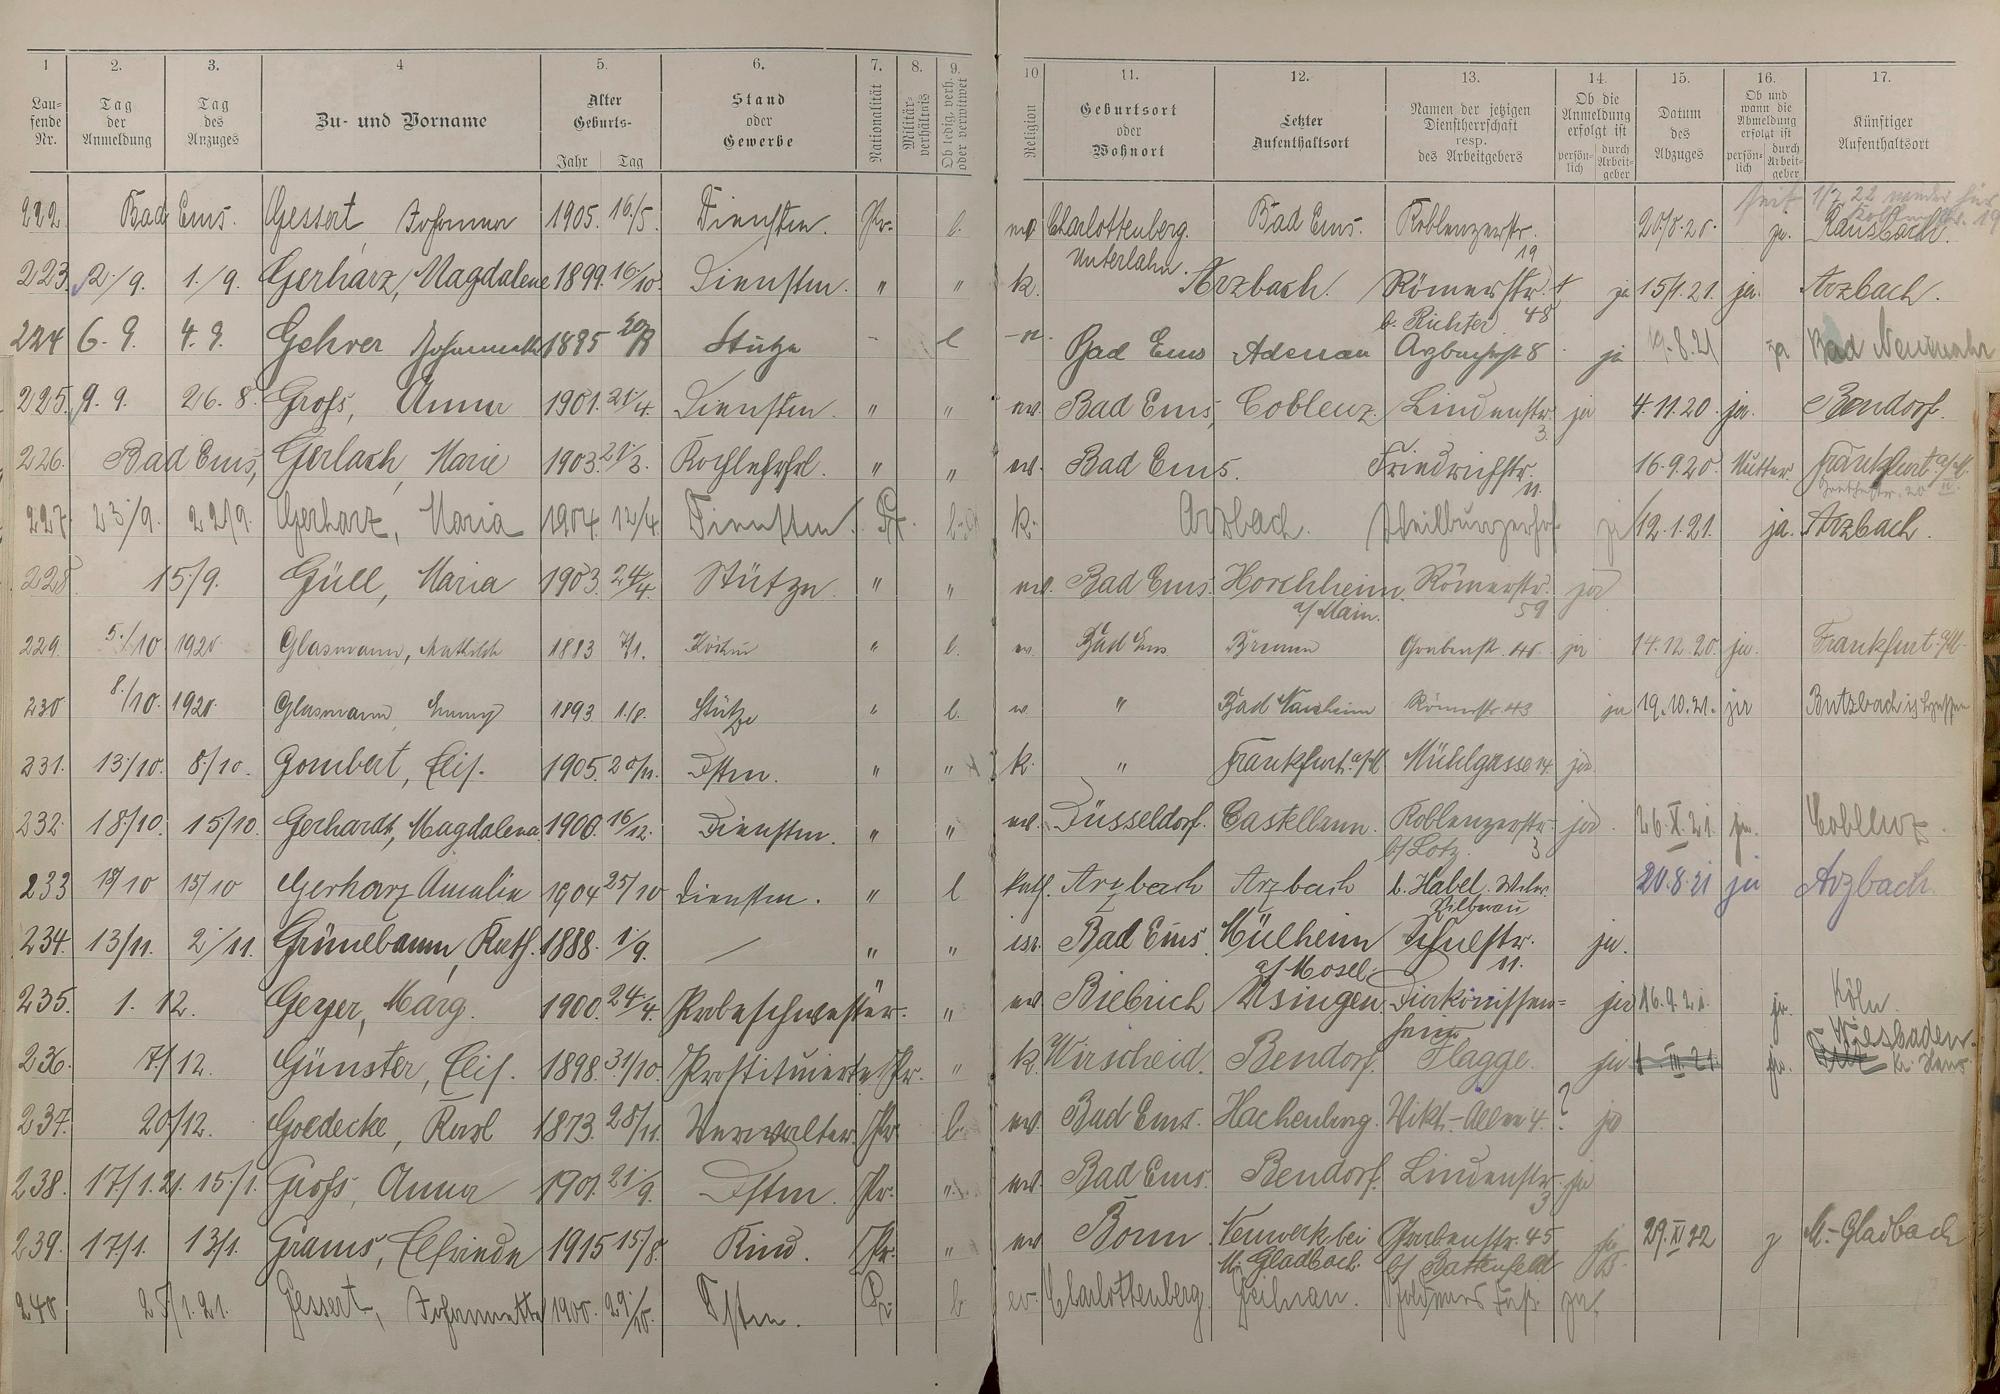 1 2. 3. 4 5. 6. 7. 8. 9. 10 11. 12. 13. 14. 15. 16. 17.
Laufende Nr. Tag der Anmeldung Tag des Anzuges Zu- und Vorname Alter Geburts- Jahr Tag Stand oder Gewerbe Nationalität Militärverhältnis Ob ledig, verh. oder verwitwet Religion Geburtsort oder Wohnort Letzter Aufenthaltsort Namen der jetzigen Dienstherrschaft resp. des Arbeitgebers Ob die Anmeldung erfolgt ist persönlich durch Arbeitgeber Datum des Abzuges Ob und wann die Abmeldung erfolgt ist persönlich durch Arbeitgeber Künftiger Aufenthaltsort
seit 1/7. 22 wieder hier
222. Bad Ems. Gessert, Johanna 1905. 16./5. Dienstm. Pr. l. ev. Charlottenberg. Unterlahn. Bad Ems. Koblenzerstr. 19 ja. Ransbach.
223. 2./9. 1./9. Gerharz, Magdalene 1899. 16./10. Dienstm. " " k. Arzbach. Römerstr. 48 ja 15/1.21. ja. Arzbach.
224 6. 9. 4. 9. Gehrer 1895 Stütze - l Bad Ems Adenau b. Richter Arzbacherst 8 ja 8.21 ja Bad Neuenahr
225. 9. 9. 26. 8. Groß, Anna 1901. 21/4. Dienstm. " " ev. Bad Ems, Coblenz. Lindenstr. 3. ja 4.11.20. ja. Bendorf.
226. Bad Ems, Gerlach, Marie 1903. 21/3. Kochlehrfrl. " " ev. Bad Ems. Friedrichstr. 11. 16.9.20. Mutter. Frankfurt a/M.
227. 23./9. 22/9. Gerharz, Maria 1904. 12/4. Dienstm. Pr. l. k. Arzbach. ja 12.1.21. ja. Arzbach.
228. 15./9. Güll, Maria 1903. 24/4. Stütze " " ev. Bad Ems. Horchheim a/Main. Römerstr. 59 ja
229. 5./10 1920 Glasmann, Mathilde 1883 7/1. Köchin " l. ev. Bad Ems Bremen Grabenst. ja 14.12.20. ja. Frankfurt a/M.
230 8./10. 1920. Glasmann, Emmy 1893. 1./8. Stütze " l. ev. " Bad Nauheim Römerstr. 43 ja 19.10.21. ja Butzbach i. Hessen
231. 13./10. 8./10. Gombert, Elis. 1905. 20/11. Dstm. " " k. " Frankfurt a/M Mühlgasse 14. ja
232. 18./10. 15/10. Gerhardt, Magdalena 1900. 16/12. Dienstm. " " ev. Düsseldorf. Castellaun. Koblenzerstr. 3 b/Lotz. ja. 26.X.21. ja. Coblenz.
233 18/10 15/10 Gerharz Amalie 1904 25/10 Dienstm. " l kath. Arzbach Arzbach b. Habel. Silberau 20.8.21 ja Arzbach.
234. 13/11. 2./11. Grünebaum, Ruth. 1888. 1./9. — " " isr. Bad Ems. Mülheim a/Mosel. Schulstr. 11. ja.
235. 1. 12. Geyer, Marg. 1900. 24/4. Probeschwester. " ev. Biebrich Usingen. Diakonissenheim ja 16.9.21. ja. Köln.
236. 7./12. Günster, Elis. 1898. 31/10. Prostituierte Pr. " k. Wirscheid. Bendorf. Flagge. ja 1.III.21. ja. Wiesbaden.
237. 20/12. Goedecke, Karl 1873. 28/11. Verwalter. Pr. l. ev. Bad Ems. Hachenburg. Vikt.-Allee 4. ? ja
238. 17/1.21. 15./1. Groß, Anna 1901. 21./9. Dstm. Pr. " ev. Bad Ems. Bendorf. Lindenstr. 3 ja
239. 17./1. 13/1. Grams, Elfriede 1915 15/8. Kind. Pr. " ev. Bonn. Neuwerk bei M. Gladbach. Grabenstr. 45 b/Battenfeld 29.XI 22 M.-Gladbach
240. 25/1.21. Gessert, Johannette 1900. 29./10. Dstm. Pr. l. ev. Charlottenberg. Geilnau. ja.